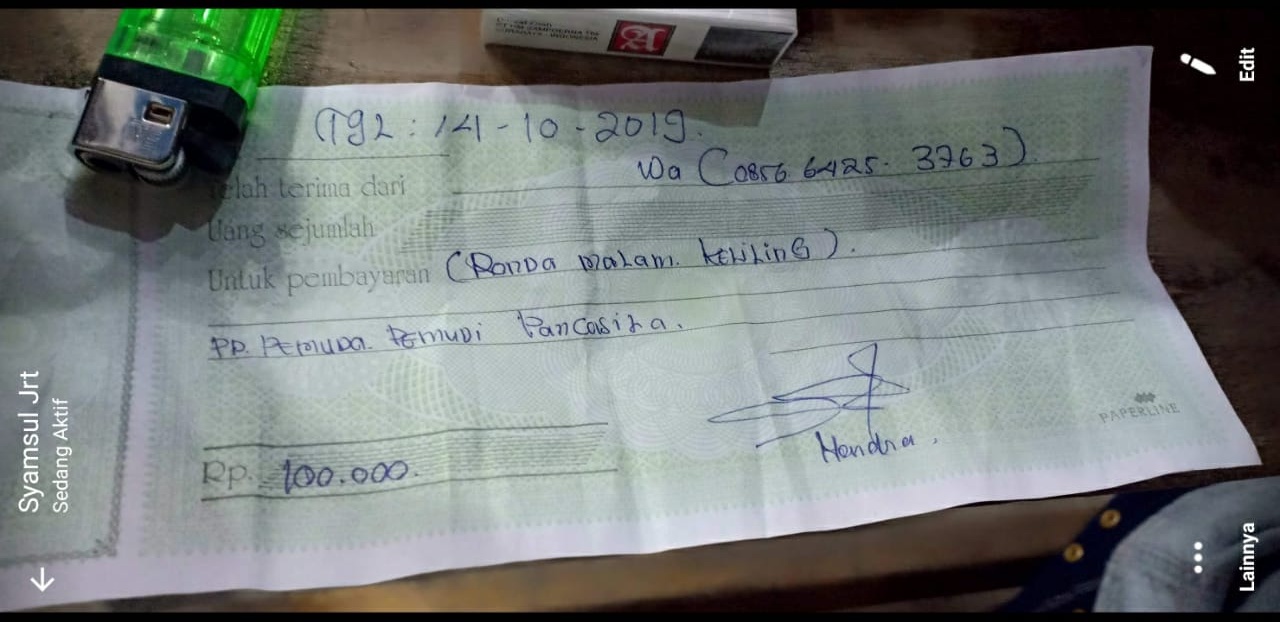 Tgl : 14-10-2019.
Wa (0856 6425. 3763).
Telah terima dari
Uang sejumlah
Untuk pembayaran (Ronda malam. keliling).
PP. Pemuda. Pemudi Pancasila.
Rp. 100.000.
Hendra.
PAPERLINE
A
SAMPOERNA Tbk
INDONESIA
Syamsul Jrt
Sedang Aktif
Edit
Lainnya